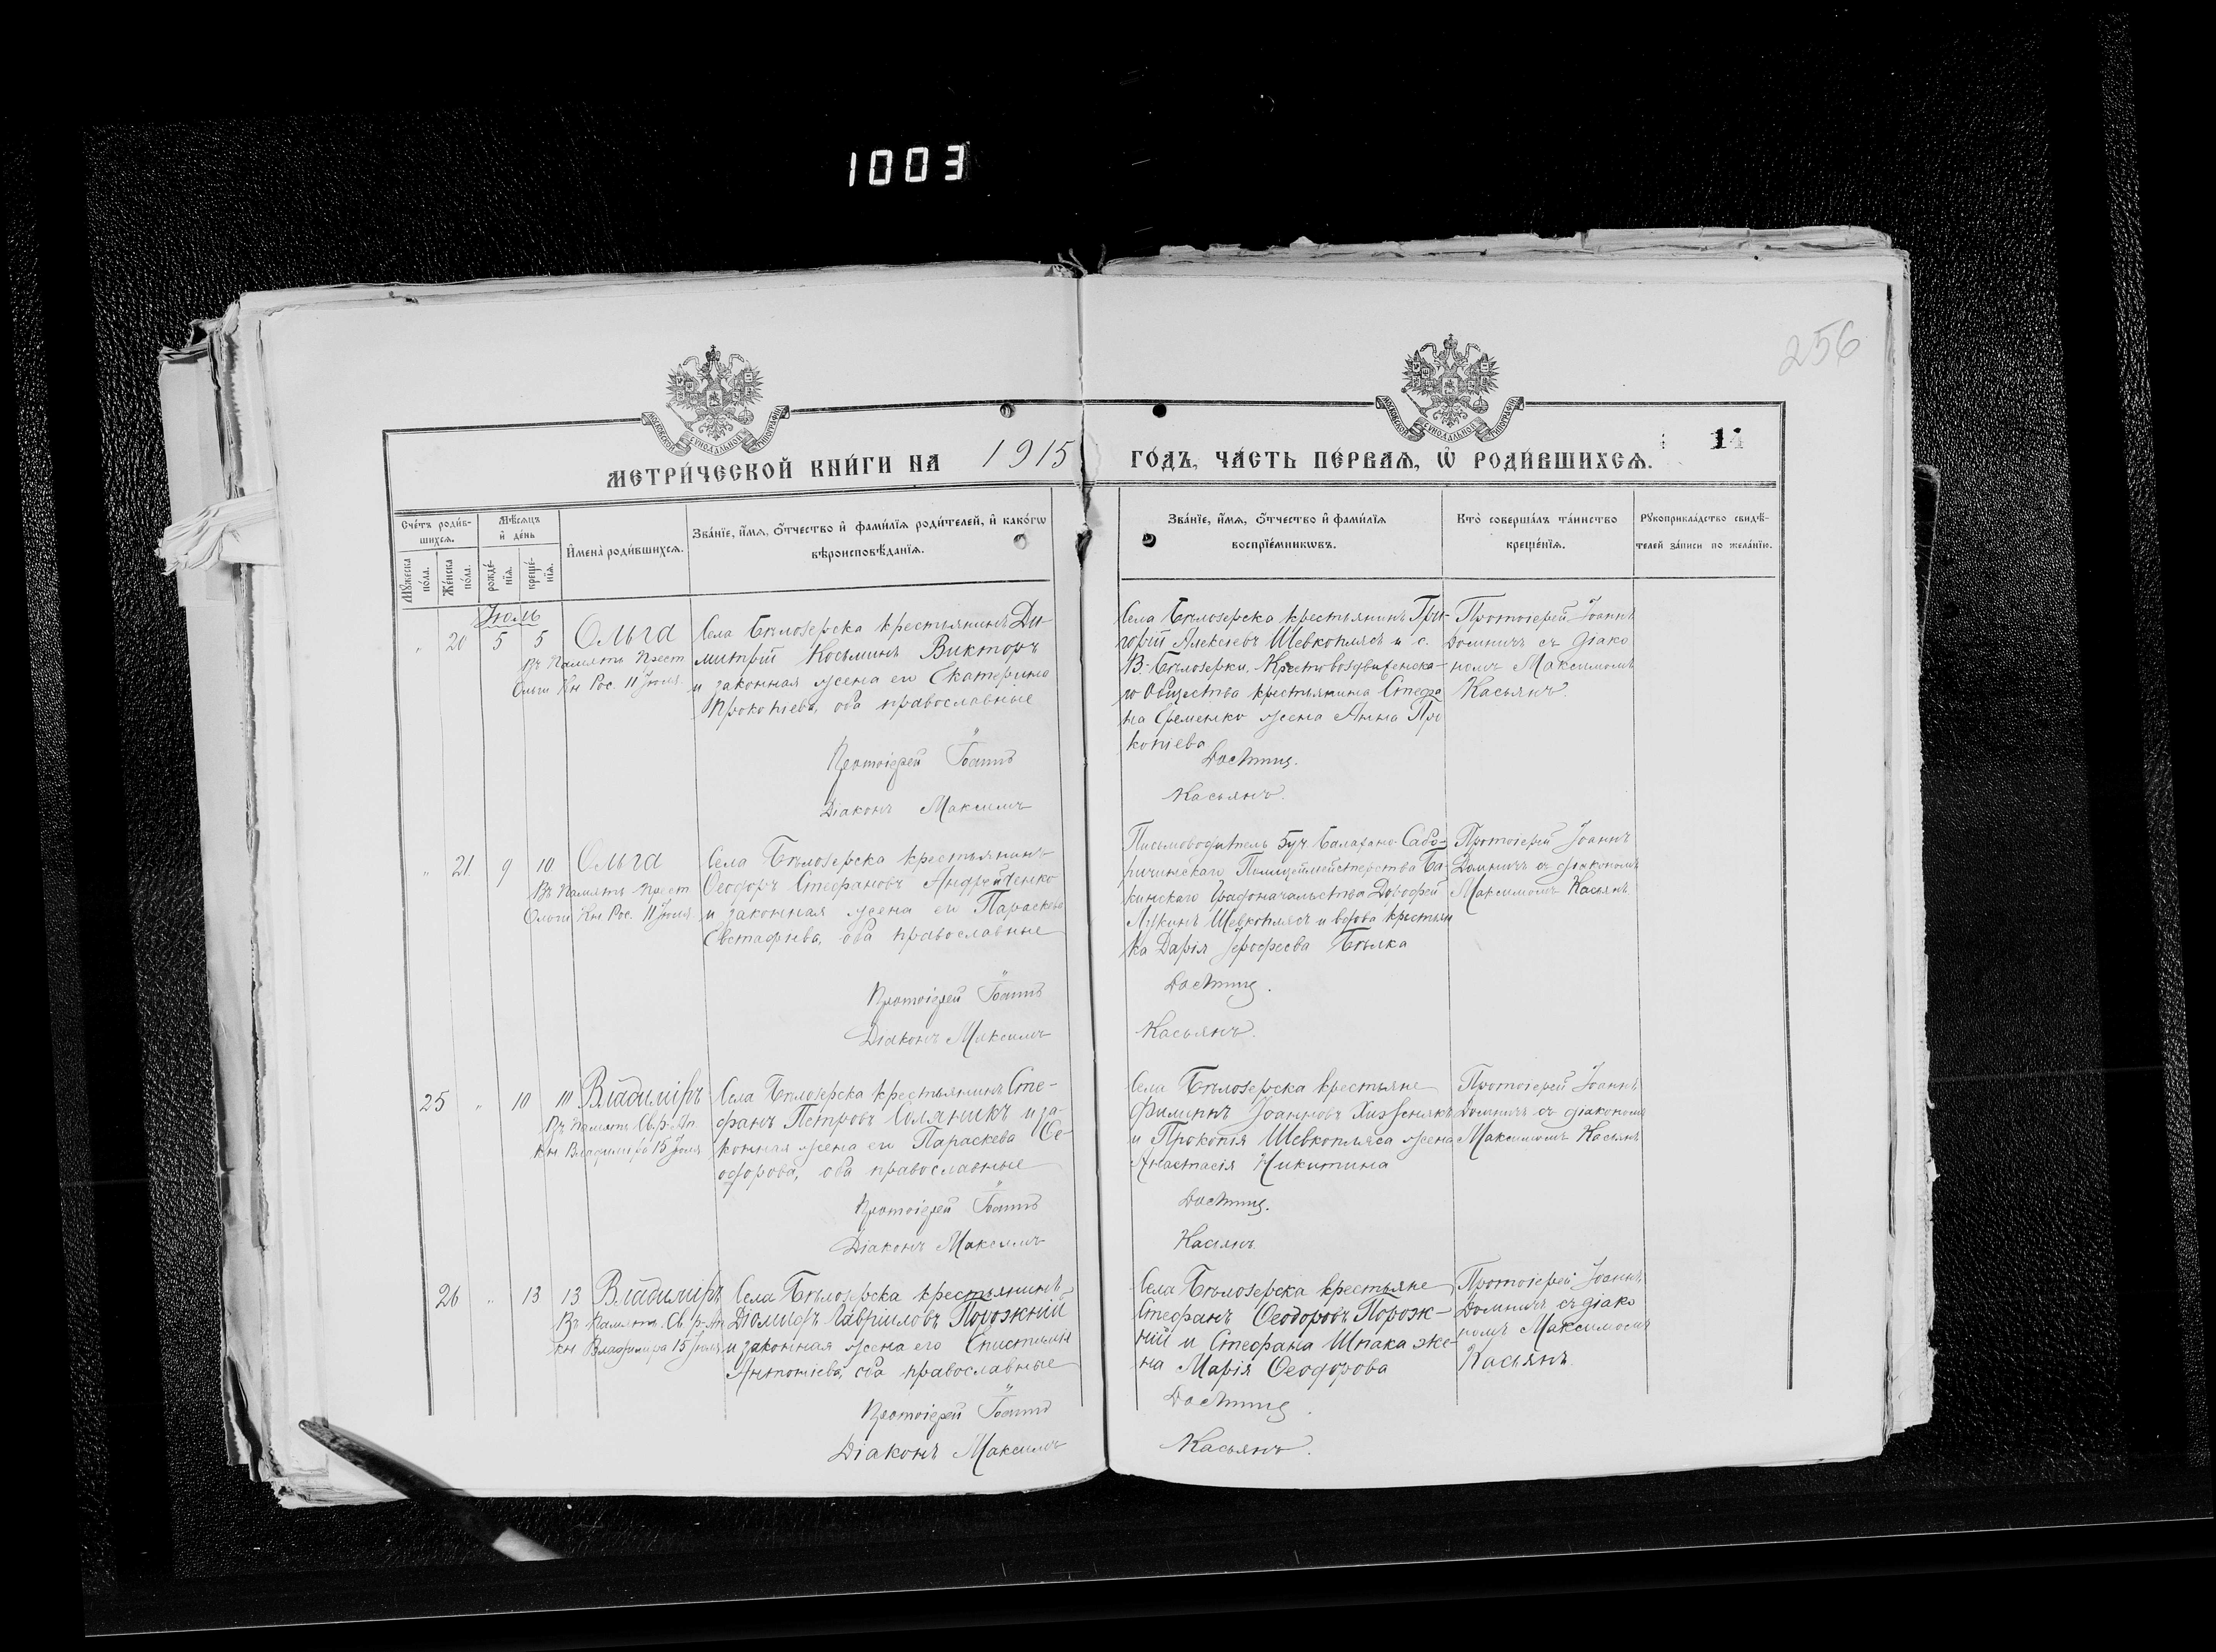 1003
256
МОСКОВСКОЙ СѴНОДАЛЬНОЙ ТИПОГРАФІИ
МОСКОВСКОЙ СѴНОДАЛЬНОЙ ТИПОГРАФІИ
МЕТРИ́ЧЕСКОЙ КНИ́ГИ НА 1915 ГО́ДЪ, ЧА́СТЬ ПЕ́РВАѦ, Ѡ҆ РОДИ́ВШИХСѦ.
14
Сче́тъ роди́в-
шихсѧ.
Мꙋ́жеска
по́ла.
Же́нска
по́ла.
Мѣ́сѧцъ
и҆ де́нь
рожде́-
нїѧ.
креще́-
нїѧ.
И҆мена̀ роди́вшихсѧ.
Зва́нїе, и҆́мѧ, ѻ҆́тчество и҆ фами́лїѧ роди́телей, и҆ како́гѡ
вѣроисповѣ́данїѧ.
Зва́нїе, и҆́мѧ, ѻ҆́тчество и҆ фами́лїѧ
воспрїе́мникѡвъ.
Кто̀ соверша́лъ та́инство
креще́нїѧ.
Рꙋкоприкла́дство свидѣ́-
телей за́писи по жела́нїю.
Іюль
" 20 5 5 Ольга
Въ Память Прест
Ольги Кн Рос. 11 Іюля
Села Бѣлозерска крестьянинъ Ди-
митрій Косьминъ Викторъ
и законная жена его Екатерина
Прокопіева, оба православные
Протоіерей Іоаннъ
Діаконъ Максимъ
Села Бѣлозерска крестьянинъ Гри-
горій Алексіевъ Шевкоплясъ и с.
В. Бѣлозерки, Крестовоздвиженска-
го Общества крестьянина Стефа
на Еременко жена Анна Про
копіева
Касьянъ.
Протоіерей Іоаннъ
Домничъ съ діако
номъ Максимомъ
Касьянъ.
" 21 9 10 Ольга
Въ Память Прест
Ольги Кн Рос. 11 Іюля
Села Бѣлозерска крестьянинъ
Ѳеодоръ Стефановъ Андрейченко
и законная жена его Параскева
Евстафіева, оба православные
Протоіерей Іоаннъ
Діаконъ Максимъ
Письмоводитель 5 уч. Балахано-Сабо-
Полицеймейстерства Ба-
кинскаго Градоначальства Доѳоѳей
Шевкоплясъ и вдова крестьян
ка Дарія Іероѳеева Бѣлка
Касьянъ.
Протоіерей Іоаннъ
Домничъ съ діакономъ
Максимомъ Касьянъ
25 " 10 11 Владиміръ
Въ Память Св. р-Ап
кн Владиміра 15 Іюля
Села Бѣлозерска крестьянинъ Сте-
фанъ Петровъ и за-
конная жена его Параскева Ѳе-
одорова, оба православные
Протоіерей Іоаннъ
Діаконъ Максимъ
Села Бѣлозерска крестьяне
Филиппъ Іоанновъ
и Прокопія Шевкопляса жена
Анастасія Никитина
Касьянъ.
Протоіерей Іоаннъ
Домничъ съ діакономъ
Максимомъ Касьянъ
26 " 13 13 Владиміръ
Въ Память Св. р-Ап
кн Владиміра 15 Іюля
Села Бѣлозерска крестьянинъ
Діомидъ Гавріиловъ Порожній
и законная жена его Епистимія
Антоніева, оба православные
Протоіерей Іоаннъ
Діаконъ Максимъ
Села Бѣлозерска крестьяне
Стефанъ Ѳеодоровъ Порож-
ній и Стефана Шпака же-
на Марія Ѳеодорова
Касьянъ.
Протоіерей Іоаннъ
Домничъ съ діако
номъ Максимомъ
Касьянъ